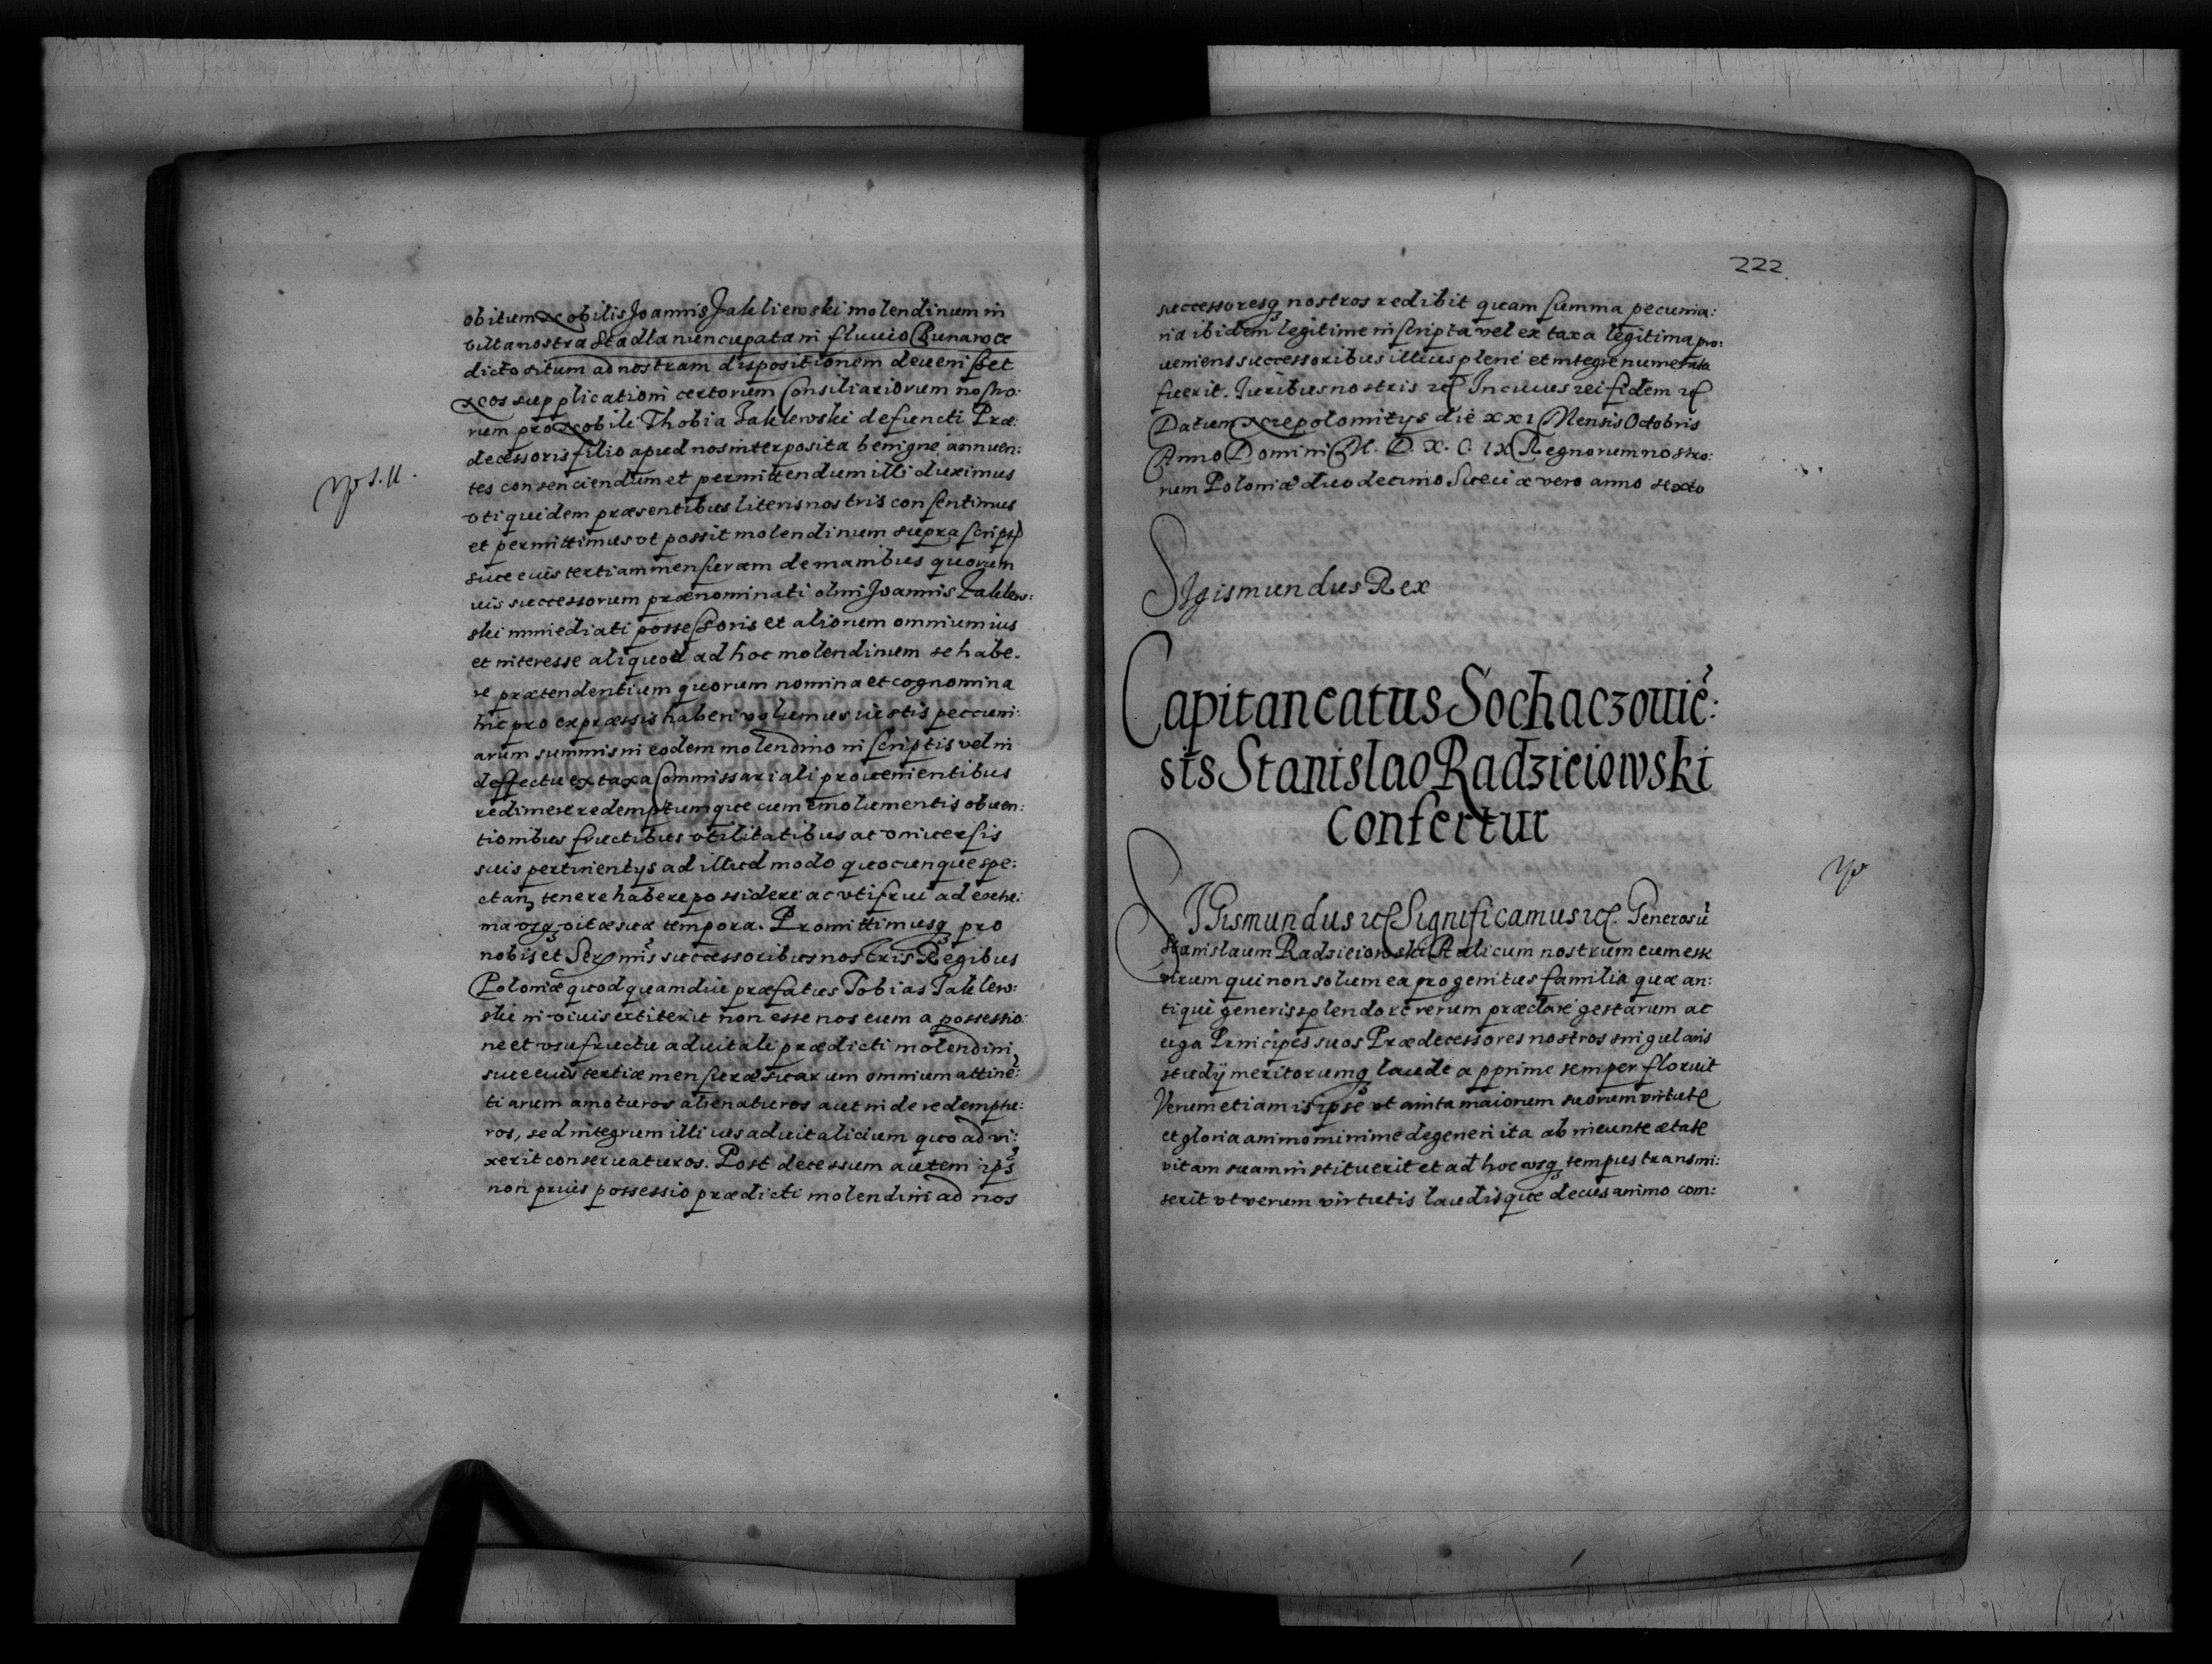 obitum Nobilis Joannis Jakliewski molendinum in
villa nostra Stadla nuncupata in fluvio Bunawoe
dicto situm ad nostram dispositionem devenisset
Nos supplicationi certorum Consiliariorum nostro:
rum pro Nobili Thobia Jaklewski defuncti Præ:
decessoris filio apud nos interposita benigne annuen:
tes consenciendum et permittendum illi duximus
vti quidem præsentibus literis nostris consentimus
et permittimus vt possit molendinum supra script
siue eius tertiam mensuram de manibus quorum
uis successorum prænominati olim Joannis Jaklew:
ski immediati possessoris et aliorum omnium ius
et interesse aliquod ad hoc molendinum se habe.
re prætendentium quorum nomina et cognomina
hic pro expræssis haberi volumus iustis peccuni:
arum summis in eodem molendino inscriptis vel in
deffectu ex taxa Commissariali prouenientibus
redimere redemptumque cum emolumentis obuen:
tionibus fructibus vtilitatibus ac vniuersis
suis pertinentijs ad illud modo quocunque spe:
ctan3 tenere habere possidere ac vti frui ad extre:
ma vsq3 vitæ suæ tempora. Promittimusq3 pro
nobis et Sermis successoribus nostris Regibus
Poloniæ quod quamdiu præfatus Tobias Jaklew:
ski in viuis extiterit non esse nos eum a possessio:
ne et vsufructu aduitali prædicti molendini,
siue eius tertiæ mensuræ suarum omnium attinē:
tiarum amoturos alienaturos aut inde redemptu:
ros, sed integrum illi ius aduitalicium quoad vi:
xerit conseruaturos. Post decessum autem ips
non prius possessio prædicti molendini ad nos
222
successoresq3 nostros redibit quam summa pecunia:
ria ibidem legitime inscripta vel ex taxa legitima pro:
ueniens successoribus illius plene et integre numerata
fuerit. Iuribus nostris etc In cuius rei fidem etc
Datum Niepolomitys die XXI Mensis Octobris
Anno Domini M. D. X. C. IX Regnorum nostro:
rum Poloniæ duodecimo Sueciæ vero anno sexto
Sigismundus Rex
Capitaneatus Sochaczouiē:
sis Stanislao Radzieiowski
confertur
SIgismundus etc Significamus etc. Generosū
Stanislaum Radzieiowski Aulicum nostrum eum esse
virum qui non solum ea progenitus familia quæ an:
tiqui generis splendore rerum præclare gestarum ac
erga Principes suos Prædecessores nostros singularis
studij meritorumq3 laude apprime semper floruit
Verum etiam is ipse vt auita maiorum suorum virtute
et gloria animo minime degeneri ita ab ineunte ætate
vitam suam instituerit et ad hoc vsq3 tempus transmi:
serit vt verum virtutis laudisque decus animo com: